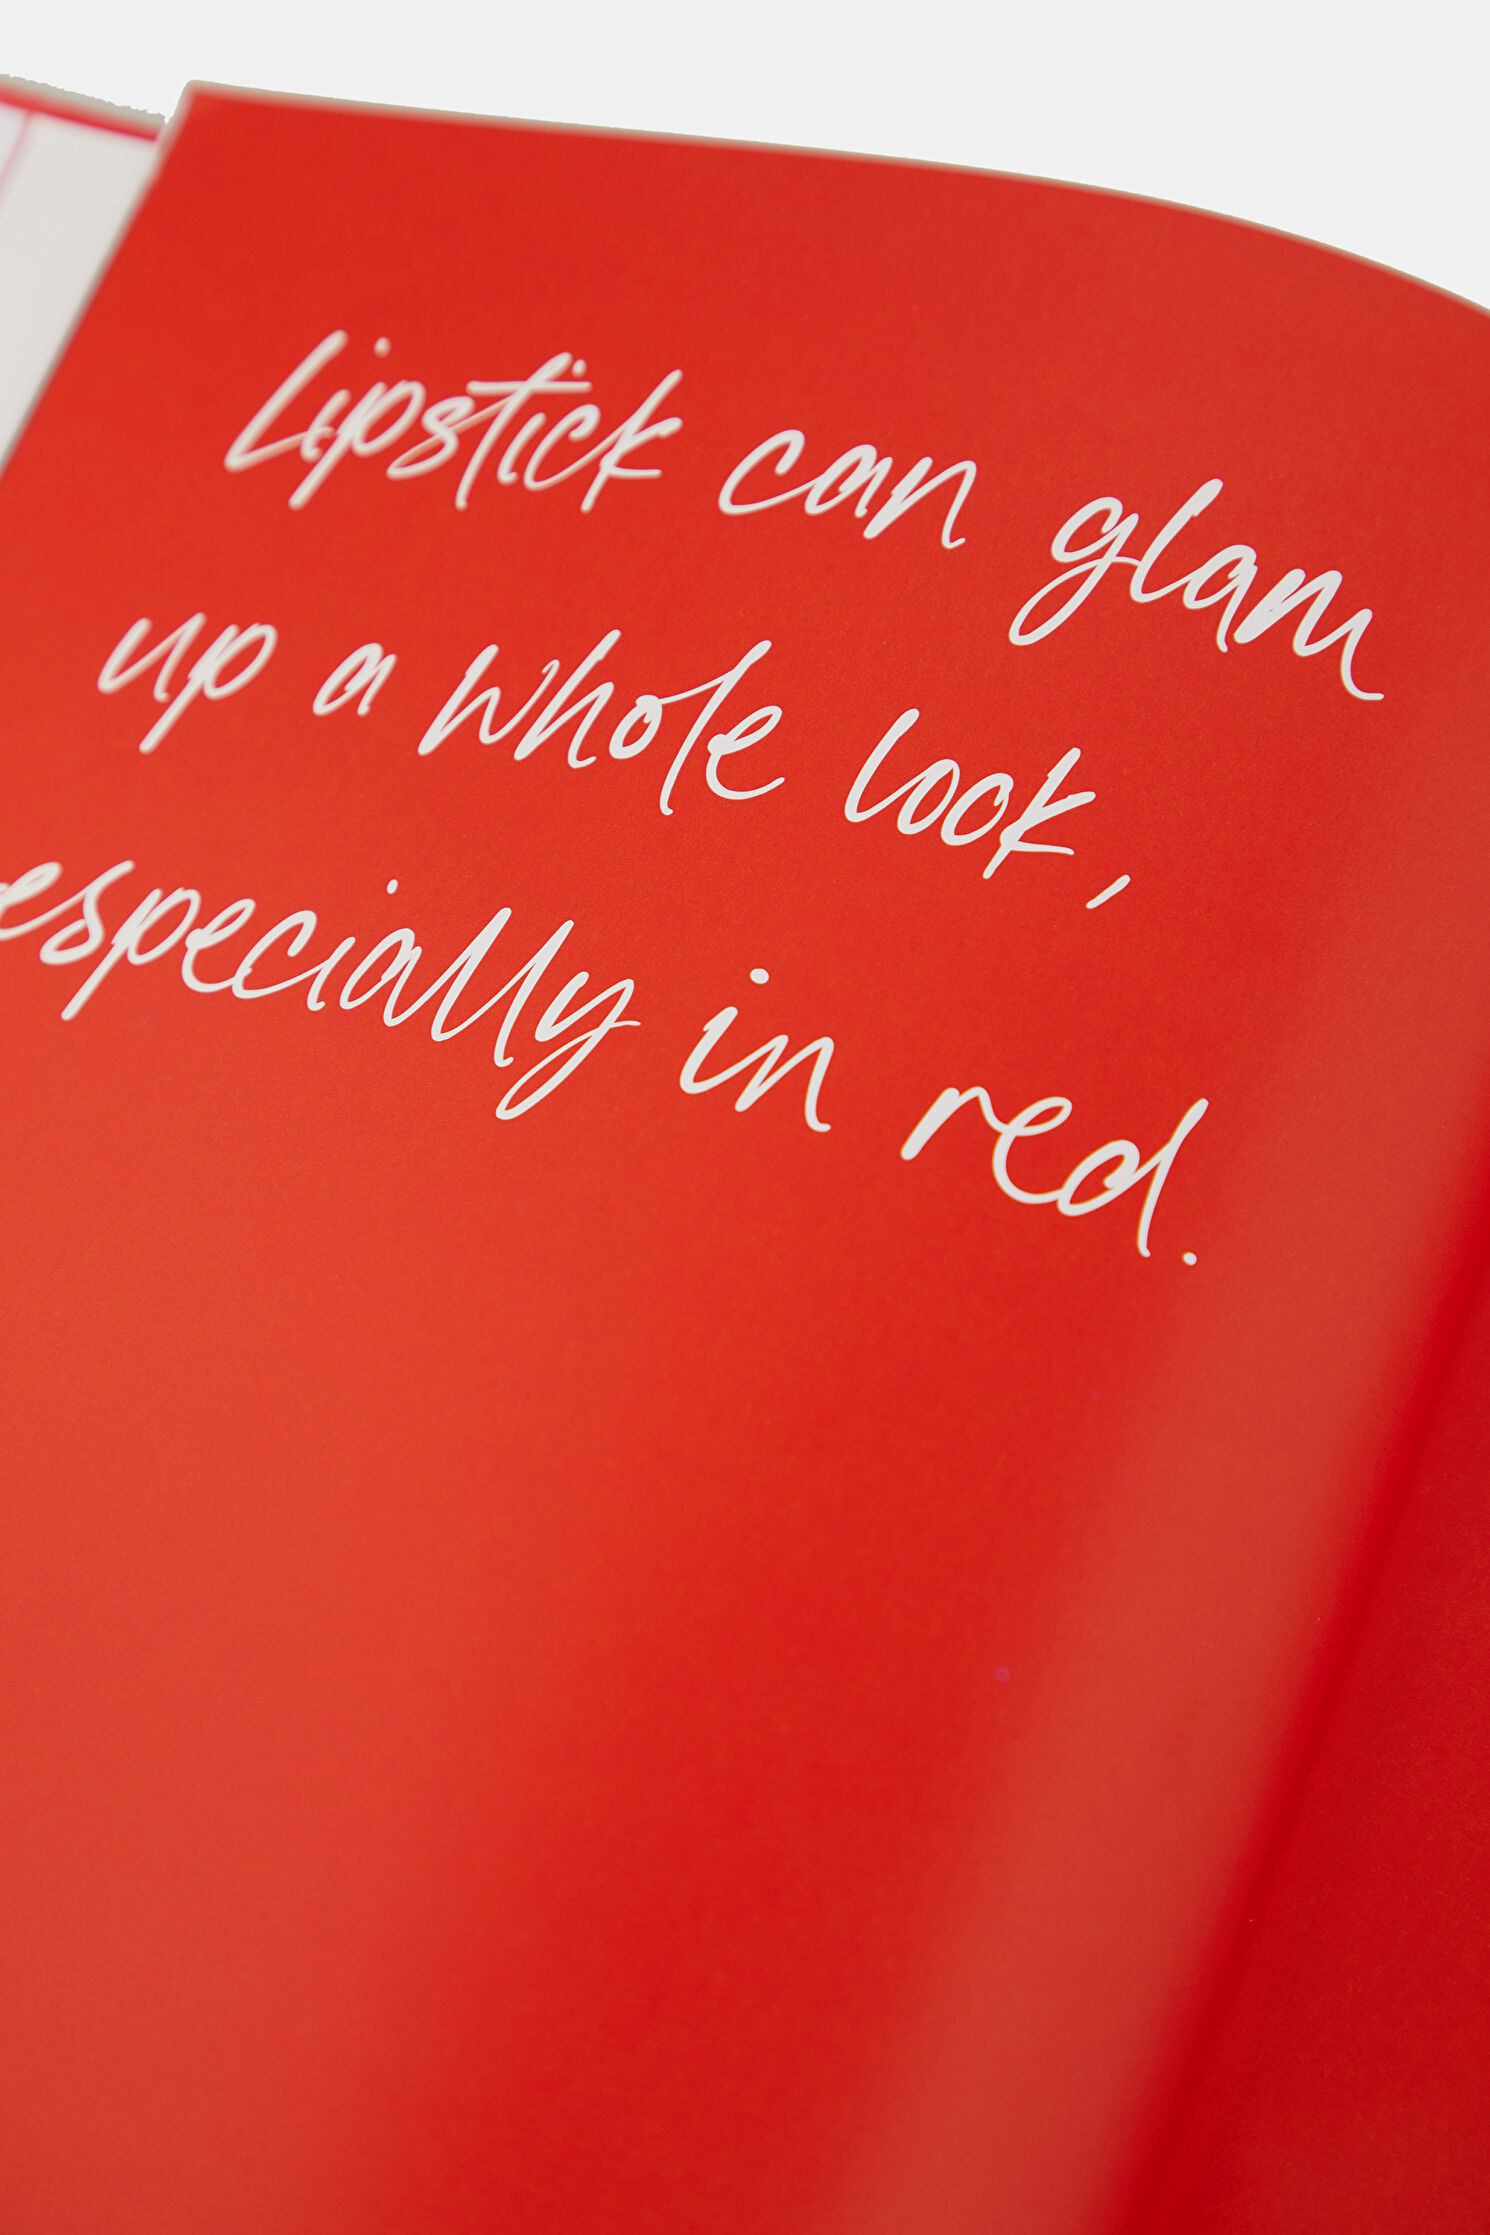 Lipstick can glam
up a whole look,
especially in red.